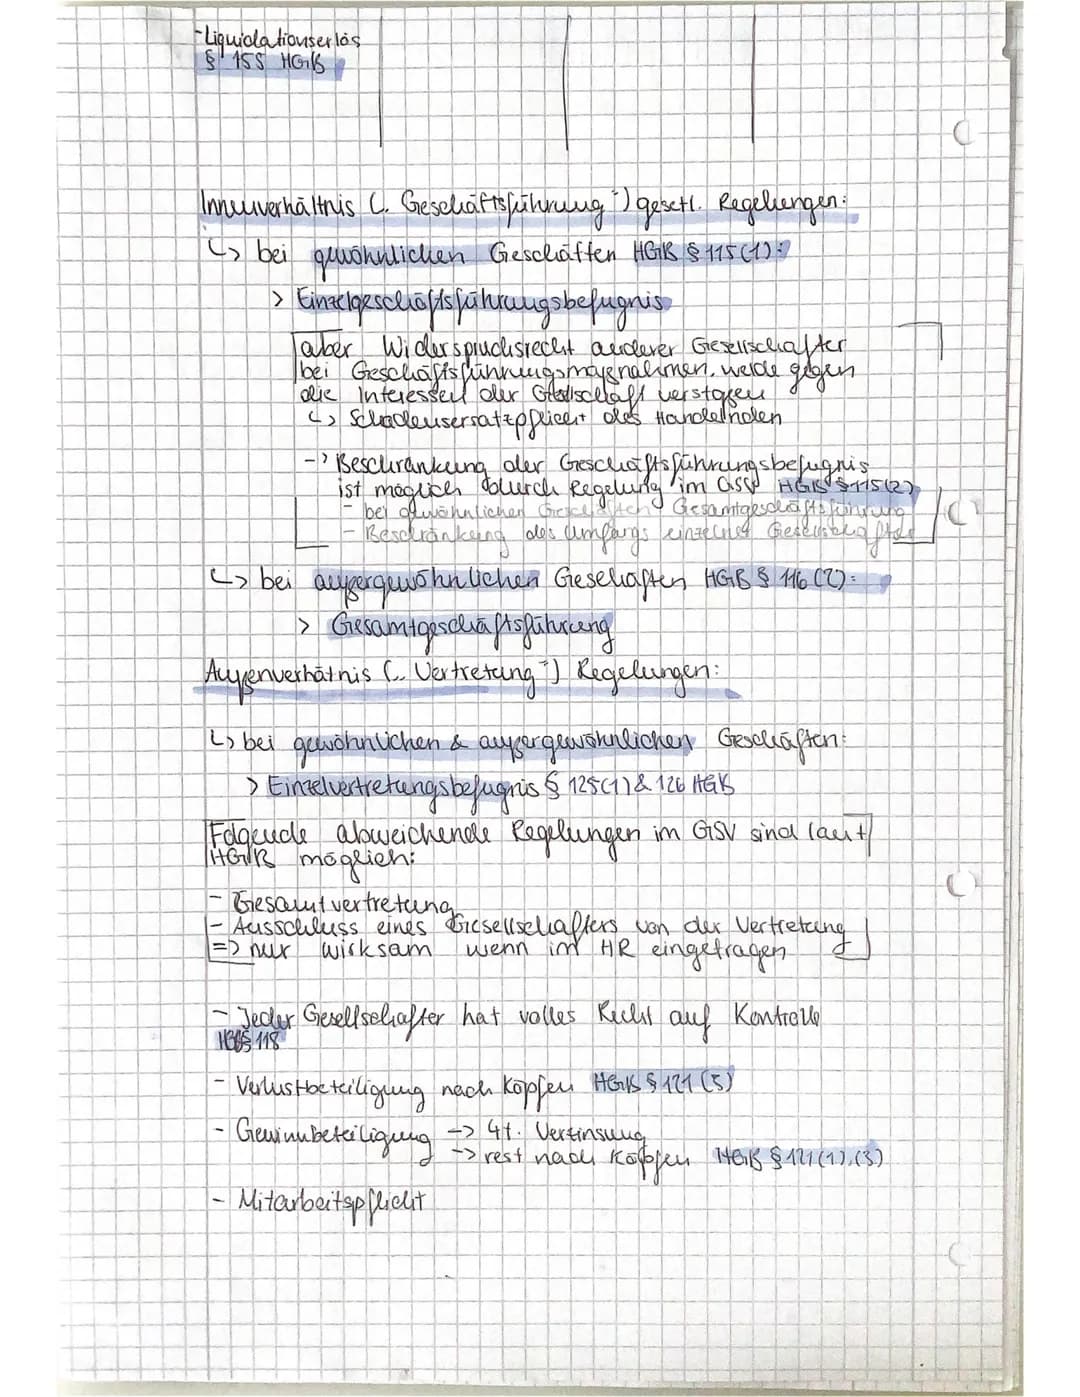 - Liquidationserlös
§ 155 HGB
Innenverhältnis („Geschäftsführung") gesetl. Regelungen:
↳ bei gewöhnlichen Geschäften HGB § 115 (1):
> Einzelgeschäftsführungsbefugnis
aber Widerspruchsrecht anderer Gesellschafter
bei Geschäftsführungsmaßnahmen, welche gegen
die Interessen der Gesellschaft verstoßen
↳ Schadensersatzpflicht des Handelnden
-> Beschränkung der Geschäftsführungsbefugnis
ist möglich durch Regelung im GSV HGB § 115 (2)
- bei gewöhnlichen Geschäften Gesamtgeschäftsführung
- Beschränkung des Umfangs einzelner Gesellschafter
↳ bei außergewöhnlichen Geschäften HGB § 116 (2):
> Gesamtgeschäftsführung
Außenverhätnis („Vertretung") Regelungen:
↳ bei gewöhnlichen & außergewöhnlichen Geschäften:
> Einzelvertretungsbefugnis § 125 (1) & 126 HGB
Folgende abweichende Regelungen im GSV sind laut
HGB möglich:
- Gesamtvertretung
- Ausschluss eines Gesellschafters von der Vertretung
=> nur wirksam wenn im HR eingetragen
- Jeder Gesellschafter hat volles Recht auf Kontrolle
HGB § 118
- Verlustbeteiligung nach Köpfen HGB § 121 (3)
- Gewinnbeteiligung -> 4%. Verzinsung
-> rest nach Köpfen HGB § 121 (1), (3)
- Mitarbeitspflicht